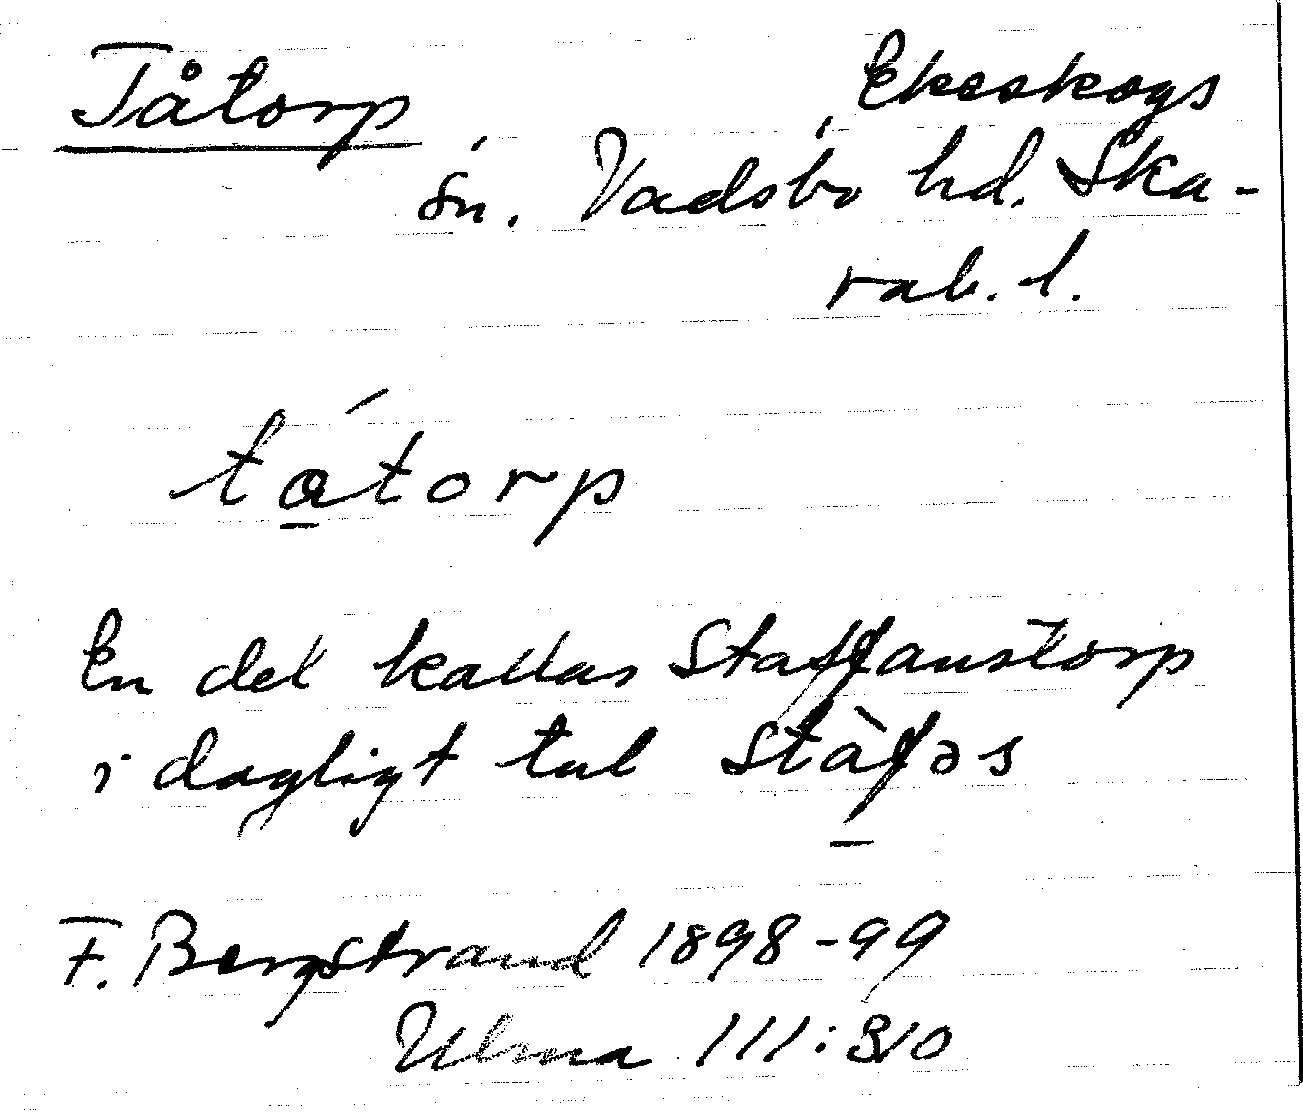 Tåtorp Ekeskogs
sn. Vadsbo hd. Ska-
rab. l.
ta̱´torp
En del kallas Staffanstorp
i dagligt tal Stà̱fəs
F. Bergstrand 1898-99
Ulma 111:310